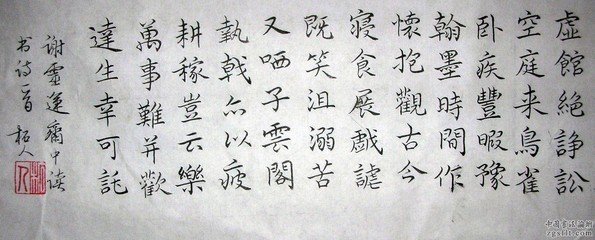 虚館絶諍訟
空庭来鳥雀
卧疾豐暇豫
翰墨時間作
懷抱觀古今
寝食展戲謔
既笑沮溺苦
又哂子雲閣
執戟亦以疲
耕稼豈云樂
萬事難并歡
達生幸可託
謝靈運齋中读
书诗一首 拓人
中國書法論壇
zgsflt.com